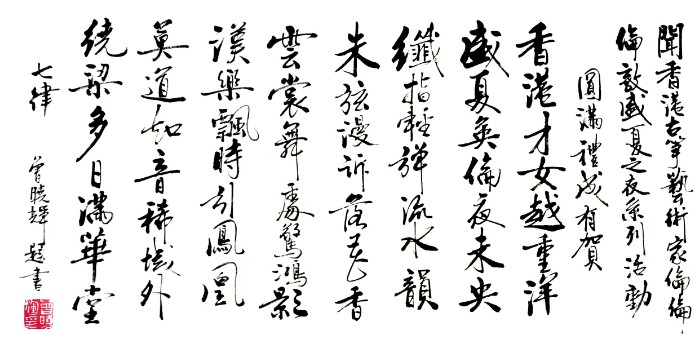 聞香港古箏藝術家倫倫
倫敦盛夏之夜系列活動
圓滿禮成有賀
香港才女越重洋
盛夏英倫夜未央
纖指輕弹流水韻
朱弦漫诉落花香
雲裳舞處驚鴻影
漢樂飄時引鳳凰
莫道知音稀域外
绕梁多日满華堂
七律
曾曉輝 題書